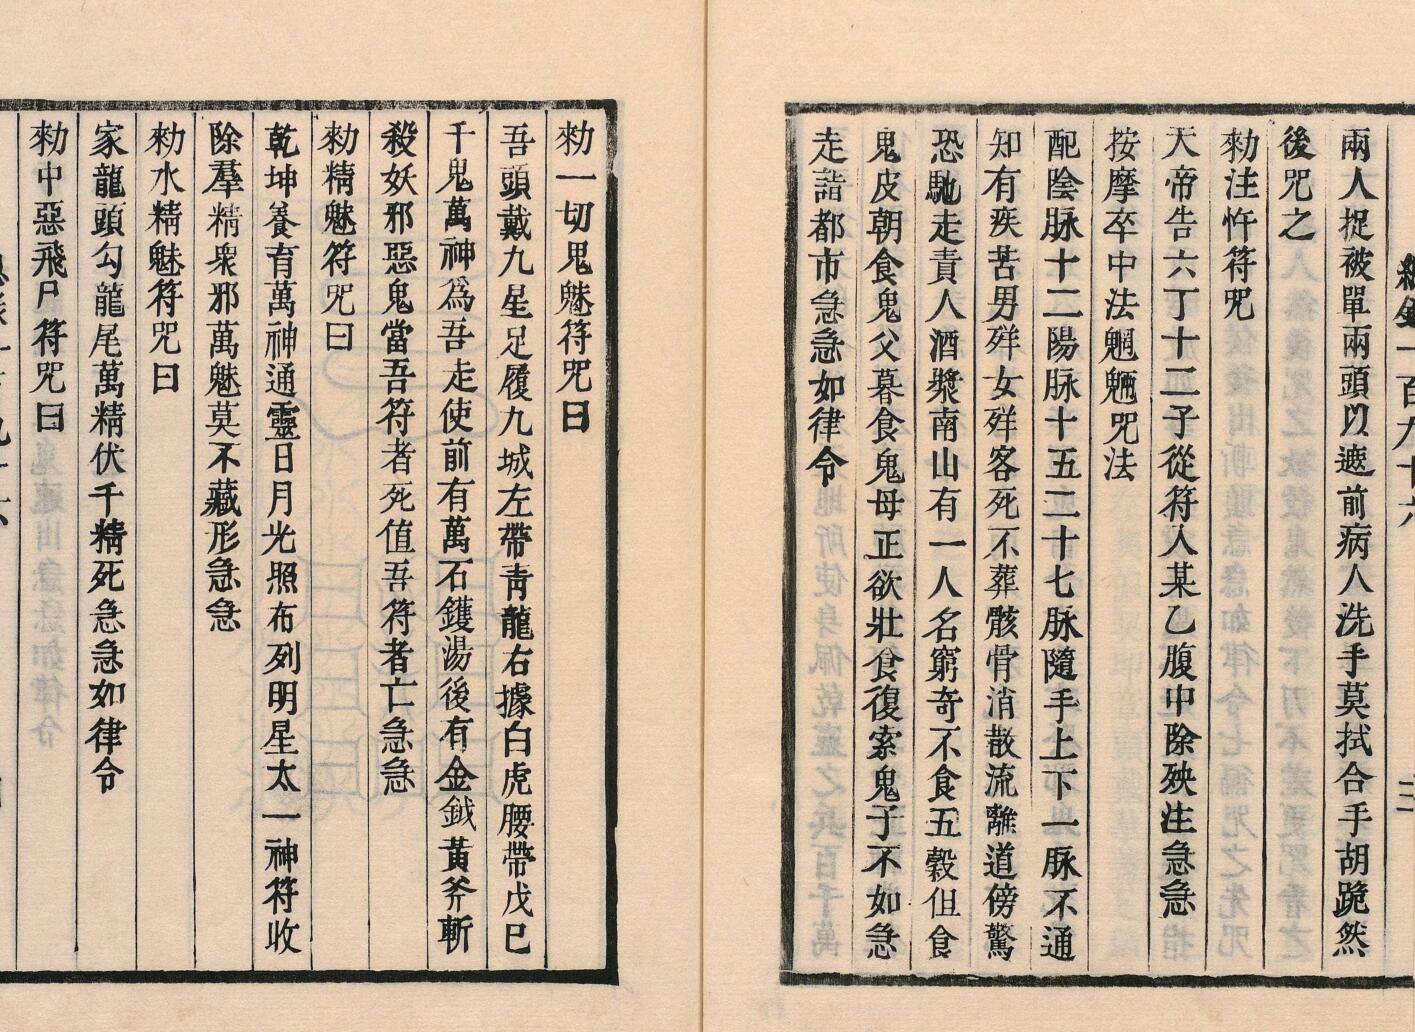 兩人捉被單兩頭以遮前病人洗手莫拭合手胡跪然
後咒之
勑注忤符咒
天帝告六丁十二子從符人某乙腹中除殃注急急
按摩卒中法魍魎咒法
配陰脉十二陽脉十五二十七脉隨手上下一脉不通
知有疾苦男殃女殃客死不葬骸骨消散流離道傍驚
恐馳走責人酒漿南山有一人名窮奇不食五穀但食
鬼皮朝食鬼父暮食鬼母正欲壯食復索鬼子不如急
走詣都市急急如律令
勑一切鬼魅符咒曰
吾頭戴九星足履九城左帶青龍右據白虎腰帶戊巳
千鬼萬神爲吾走使前有萬石鑊湯後有金鉞黃斧斬
殺妖邪惡鬼當吾符者死值吾符者亡急急
勑精魅符咒曰
乾坤養育萬神通靈日月光照布列明星太一神符收
除羣精衆邪萬魅莫不藏形急急
勑水精魅符咒曰
家龍頭勾龍尾萬精伏千精死急急如律令
勑中惡飛尸符咒曰